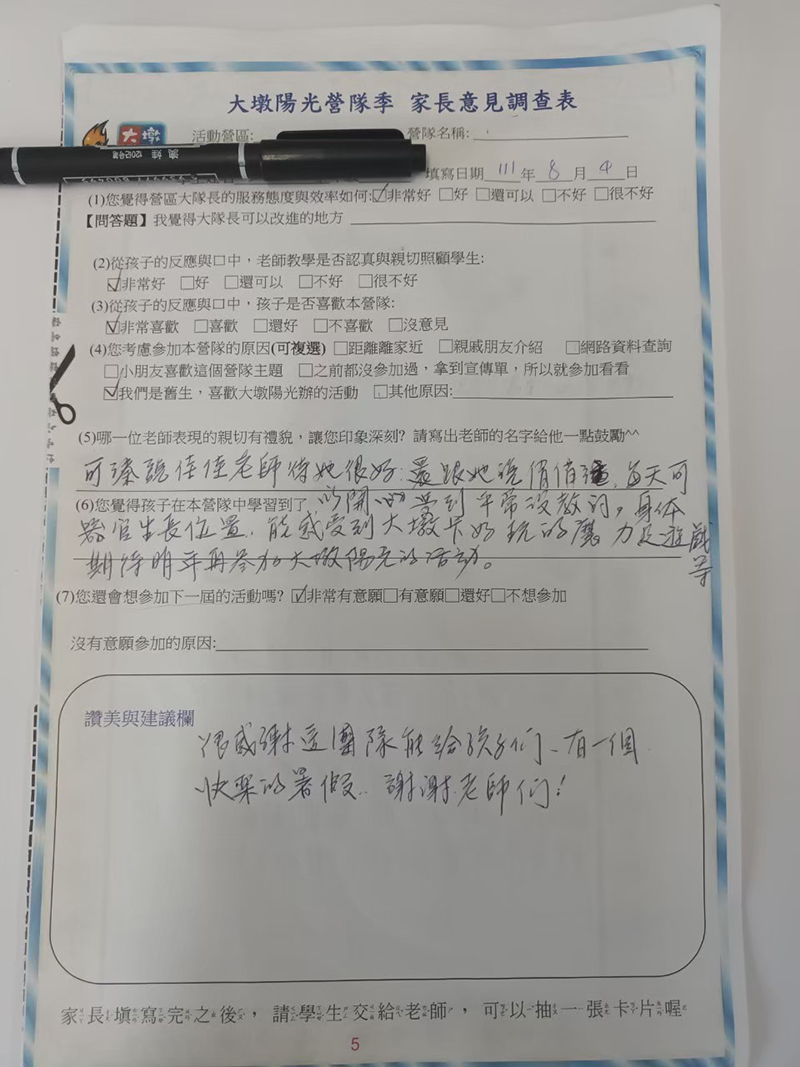 大墩陽光營隊季 家長意見調查表
大墩 活動營區: 營隊名稱:
填寫日期 111 年 8 月 4 日
(1)您覺得營區大隊長的服務態度與效率如何:☑非常好 □好 □還可以 □不好 □很不好
【問答題】我覺得大隊長可以改進的地方
(2)從孩子的反應與口中，老師教學是否認真與親切照顧學生:
☑非常好 □好 □還可以 □不好 □很不好
(3)從孩子的反應與口中，孩子是否喜歡本營隊:
☑非常喜歡 □喜歡 □還好 □不喜歡 □沒意見
(4)您考慮參加本營隊的原因(可複選) □距離離家近 □親戚朋友介紹 □網路資料查詢
□小朋友喜歡這個營隊主題 □之前都沒參加過，拿到宣傳單，所以就參加看看
☑我們是舊生，喜歡大墩陽光辦的活動 □其他原因:
(5)哪一位老師表現的親切有禮貌，讓您印象深刻? 請寫出老師的名字給他一點鼓勵^^
可臻說佳佳老師待她很好.還跟她說悄悄話,每天可
(6)您覺得孩子在本營隊中學習到了 以開心的學到平常沒教的，身体
器官生長位置.能感受到大墩卡好玩的魔力及遊戲等
期待明年再參加大墩陽光的活动。
(7)您還會想參加下一屆的活動嗎? ☑非常有意願□有意願□還好□不想參加
沒有意願參加的原因:
讚美與建議欄
很感謝這團隊能給孩子们、有一個
快樂的暑假..謝謝老師们!
家長填寫完之後，請學生交給老師，可以抽一張卡片喔
5